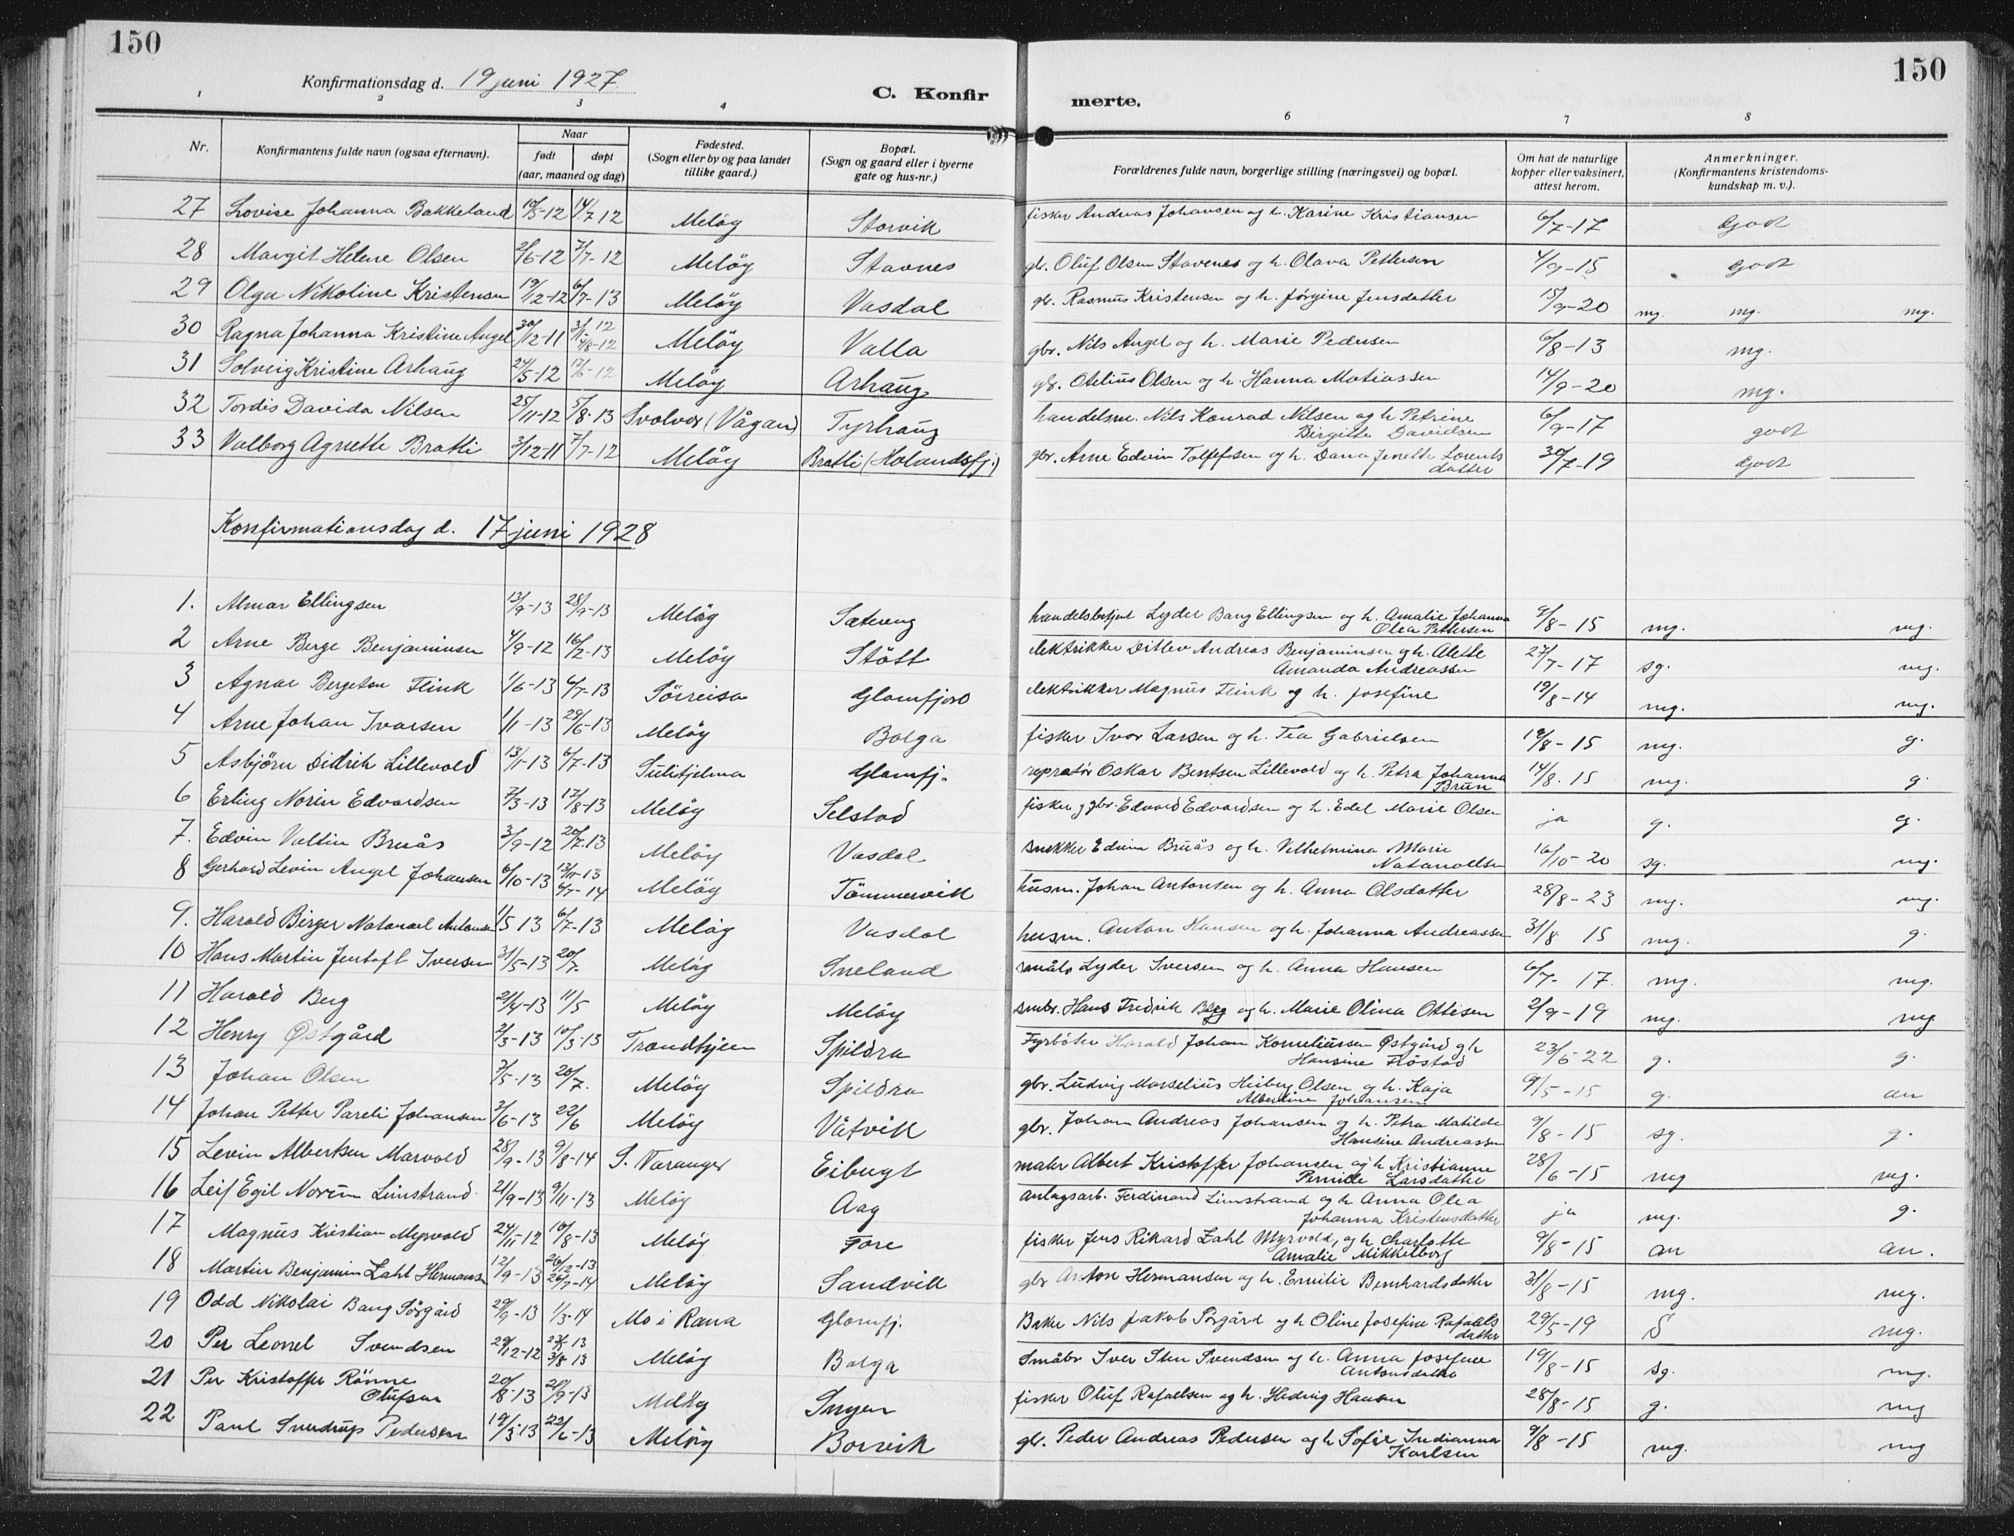 150
150
Konfirmationsdag d. 19 juni 1927.
C. Konfir
merte.
1 2 3 4 6 7 8
Nr.
Konfirmantens fulde navn (ogsaa efternavn).
Naar
født døpt
(aar, maaned og dag)
Fødested.
(Sogn eller by og paa landet
tillike gaard.)
Bopæl.
(Sogn og gaard eller i byerne
gate og hus-nr.)
Forældrenes fulde navn, borgerlige stilling (næringsvei) og bopæl.
Om hat de naturlige
kopper eller vaksinert,
attest herom.
Anmerkninger.
(Konfirmantens kristendoms-
kundskap m. v.).
27 Lovise Johanna Bakkeland 19/5-12 14/7 12 Meløy Storvik fisker Andreas Johansen og h. Karine Kristiansen 6/7-17 Godt
28 Margit Helene Olsen 2/6-12 7/7-12 Meløy Stavnes gb. Oluf Olsen Stavenes og h. Olava Pettersen 4/9-15 Godt
29 Olga Nikoline Kristensen 19/12-12 6/7-13 Meløy Vasdal gb. Rasmus Kristensen og h. Jørgine Jensdatter 15/9-20 mg. mg. mg.
30 Ragna Johanna Kristine Angel 30/12-11 3/11-12 4/8-12 Meløy Valla gbr. Nils Angel og h. Marie Pedersen 6/8-13 mg.
31 Solveig Kristine Arhaug 24/5-12 17/6-12 Meløy Arhaug gb. Otelius Olsen og h. Hanna Matiassen 14/9-20 mg.
32 Tordis Davida Nilsen 25/11-12 5/8-13 Svolvær (Vågan) Tyrhaug handelsm. Nils Konrad Nilsen og h Petrine
Birgitte Davidsen 6/9-17 godt
33 Valborg Agnette Bratli 3/12-11 7/7-12 Meløy Bratli (Holandsfj.) gbr. Arne Edvin Tollefsen og h. Dana Jenette Lorents
datter 30/7-19 Godt
Konfirmationsdag d. 17 juni 1928
1. Almar Ellingsen 13/9-13 28/9-13 Meløy Sætereng handelsbetjnt Lyder Bang Ellingsen og h. Amalie Johanna
Olea Pettersen 9/8-15 mg. mg.
2 Arne Berge Benjaminsen 4/9-12 16/2-13 Meløy Stött elektrikker Ditlev Andreas Benjaminsen og h. Alette
Amanda Andreassen 27/7-17 sg. mg.
3 Agnar Bergeton Flink 1/6-13 6/7-13 Sörreisa Glomfjord elektrikker Magnus Flink og h. Josefine 19/8-14 mg. mg.
4 Arne Johan Ivarsen 1/1-13 29/6-13 Meløy Bolga fisker Ivar Larsen og h. Tea Gabrielsen 19/8-15 mg. g.
5 Asbjörn Didrik Lillevold 13/11-13 6/7-13 Sulitjelma Glomfj. repratör Oskar Bentsen Lillevold og h. Petra Johanna
Brun 14/8-15 mg. g.
6 Erling Norin Edvardsen 7/3-13 17/8-13 Meløy Selstad fisker, gbr. Edvard Edvardsen og h. Edel Marie Olsen ja g. g.
7. Edvin Valtin Bruås 3/9-12 20/7-13 Meløy Vasdal snekker Edvin Bruås og h. Vilhelmina Marie
Natanaelsen 16/10-20 sg. mg.
8 Gerhard Levin Angel Johansen 6/10-13 12/11-13 6/7-14 Meløy Tömmervik husm. Johan Antonsen og h. Anna Olsdatter 28/8-23 mg. mg.
9. Harald Birger Natanael Antonsen 1/5 13 6/7-13 Meløy Vasdal husm. Anton Hansen og h. Johanna Andreassen 31/8 15 mg. g.
10 Hans Martin Jentoft Iversen 31/5-13 20/7- Meløy Sneland småb Lyder Iversen og h. Anna Hansen 6/7-17. mg. mg.
11 Harald Berg 2/4-13 11/5 Meløy Meløy smbr. Hans Fredrik Berg og h. Marie Olina Ottesen 2/9-19 mg. mg
12 Henry Østgård 2/3-13 10/3-13 Trondhjem Spildra Fyrböter Harald Johan Korneliussen Østgård og h
Hansine Flöstad 23/6-22 g. g.
13 Johan Olsen 3/5-13 20/7. Meløy Spildra gbr. Ludvig Marselius Heiberg Olsen og h. Kaja
Albertine Johansen 9/5-15 g. an
14 Johan Petter Pareli Johansen 3/6-13 22/6 Meløy Våtvik gbr. Johan Andreas Johansen og h. Petra Matilde
Hansine Andreassen 9/8-15 sg. g.
15 Levin Albertsen Marvold 28/9-13 9/8-14 S. Varanger Eibugt maler Albert Kristoffer Johansen og h Kristianne
Pernille Larsdatter 28/6-15 mg mg.
16 Leif Egil Norum Limstrand. 21/9-13 9/11-13 Meløy Aag anlagsarb. Ferdinand Limstrand og h Anna Olea
Johanna Kristensdatter ja mg. g.
17 Magnus Kristian Myrvold 24/11-12 10/8-13 Meløy Fore fisker Jens Rikard Zahl Myrvold, og h Charlotte
Amalie Mikkelborg 9/8-15 an an.
18 Martin Benjamin Zahl Hermansen 12/9-13 26/12-13 26/7-14 Meløy Sandvik gbr Anton Hermansen og h. Emilie Bernhardsdatter 31/8-15 mg. mg.
19 Odd Nikolai Bang Sörgård 29/9-13 1/3-14 Mo i Rana Glomfj. Baker Nils Jakob Sörgård og h Oline Josefine Rafaels
datter 29/5-19 S mg.
20 Per Leonel Svendsen 29/12-12 23/3-13 3/8-13 Meløy Bolga Småbr Iver Sten Svendsen og h. Anna Josefine
Antonsdatter 19/8-15 sg. mg.
21 Per Kristoffer Rönne
Olufsen 20/8-13 21/9-13 Meløy Inyen fisker Oluf Rafaelsen og h. Hedvig Hansen 28/8-15 g. mg
22 Paul Sverdrup Pedersen 19/3-13 22/6-13 Meløy Borvik gb. Peder Andreas Pedersen og h Sofie Indianna
Karlsen 9/8-15 mg. mg